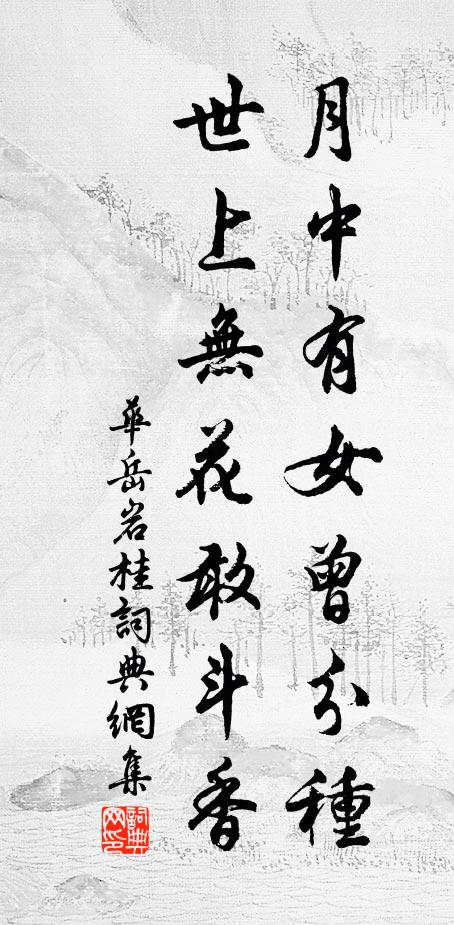 月中有女曾分種
世上無花敢斗香
華岳岩桂詞典網集
詞典網印